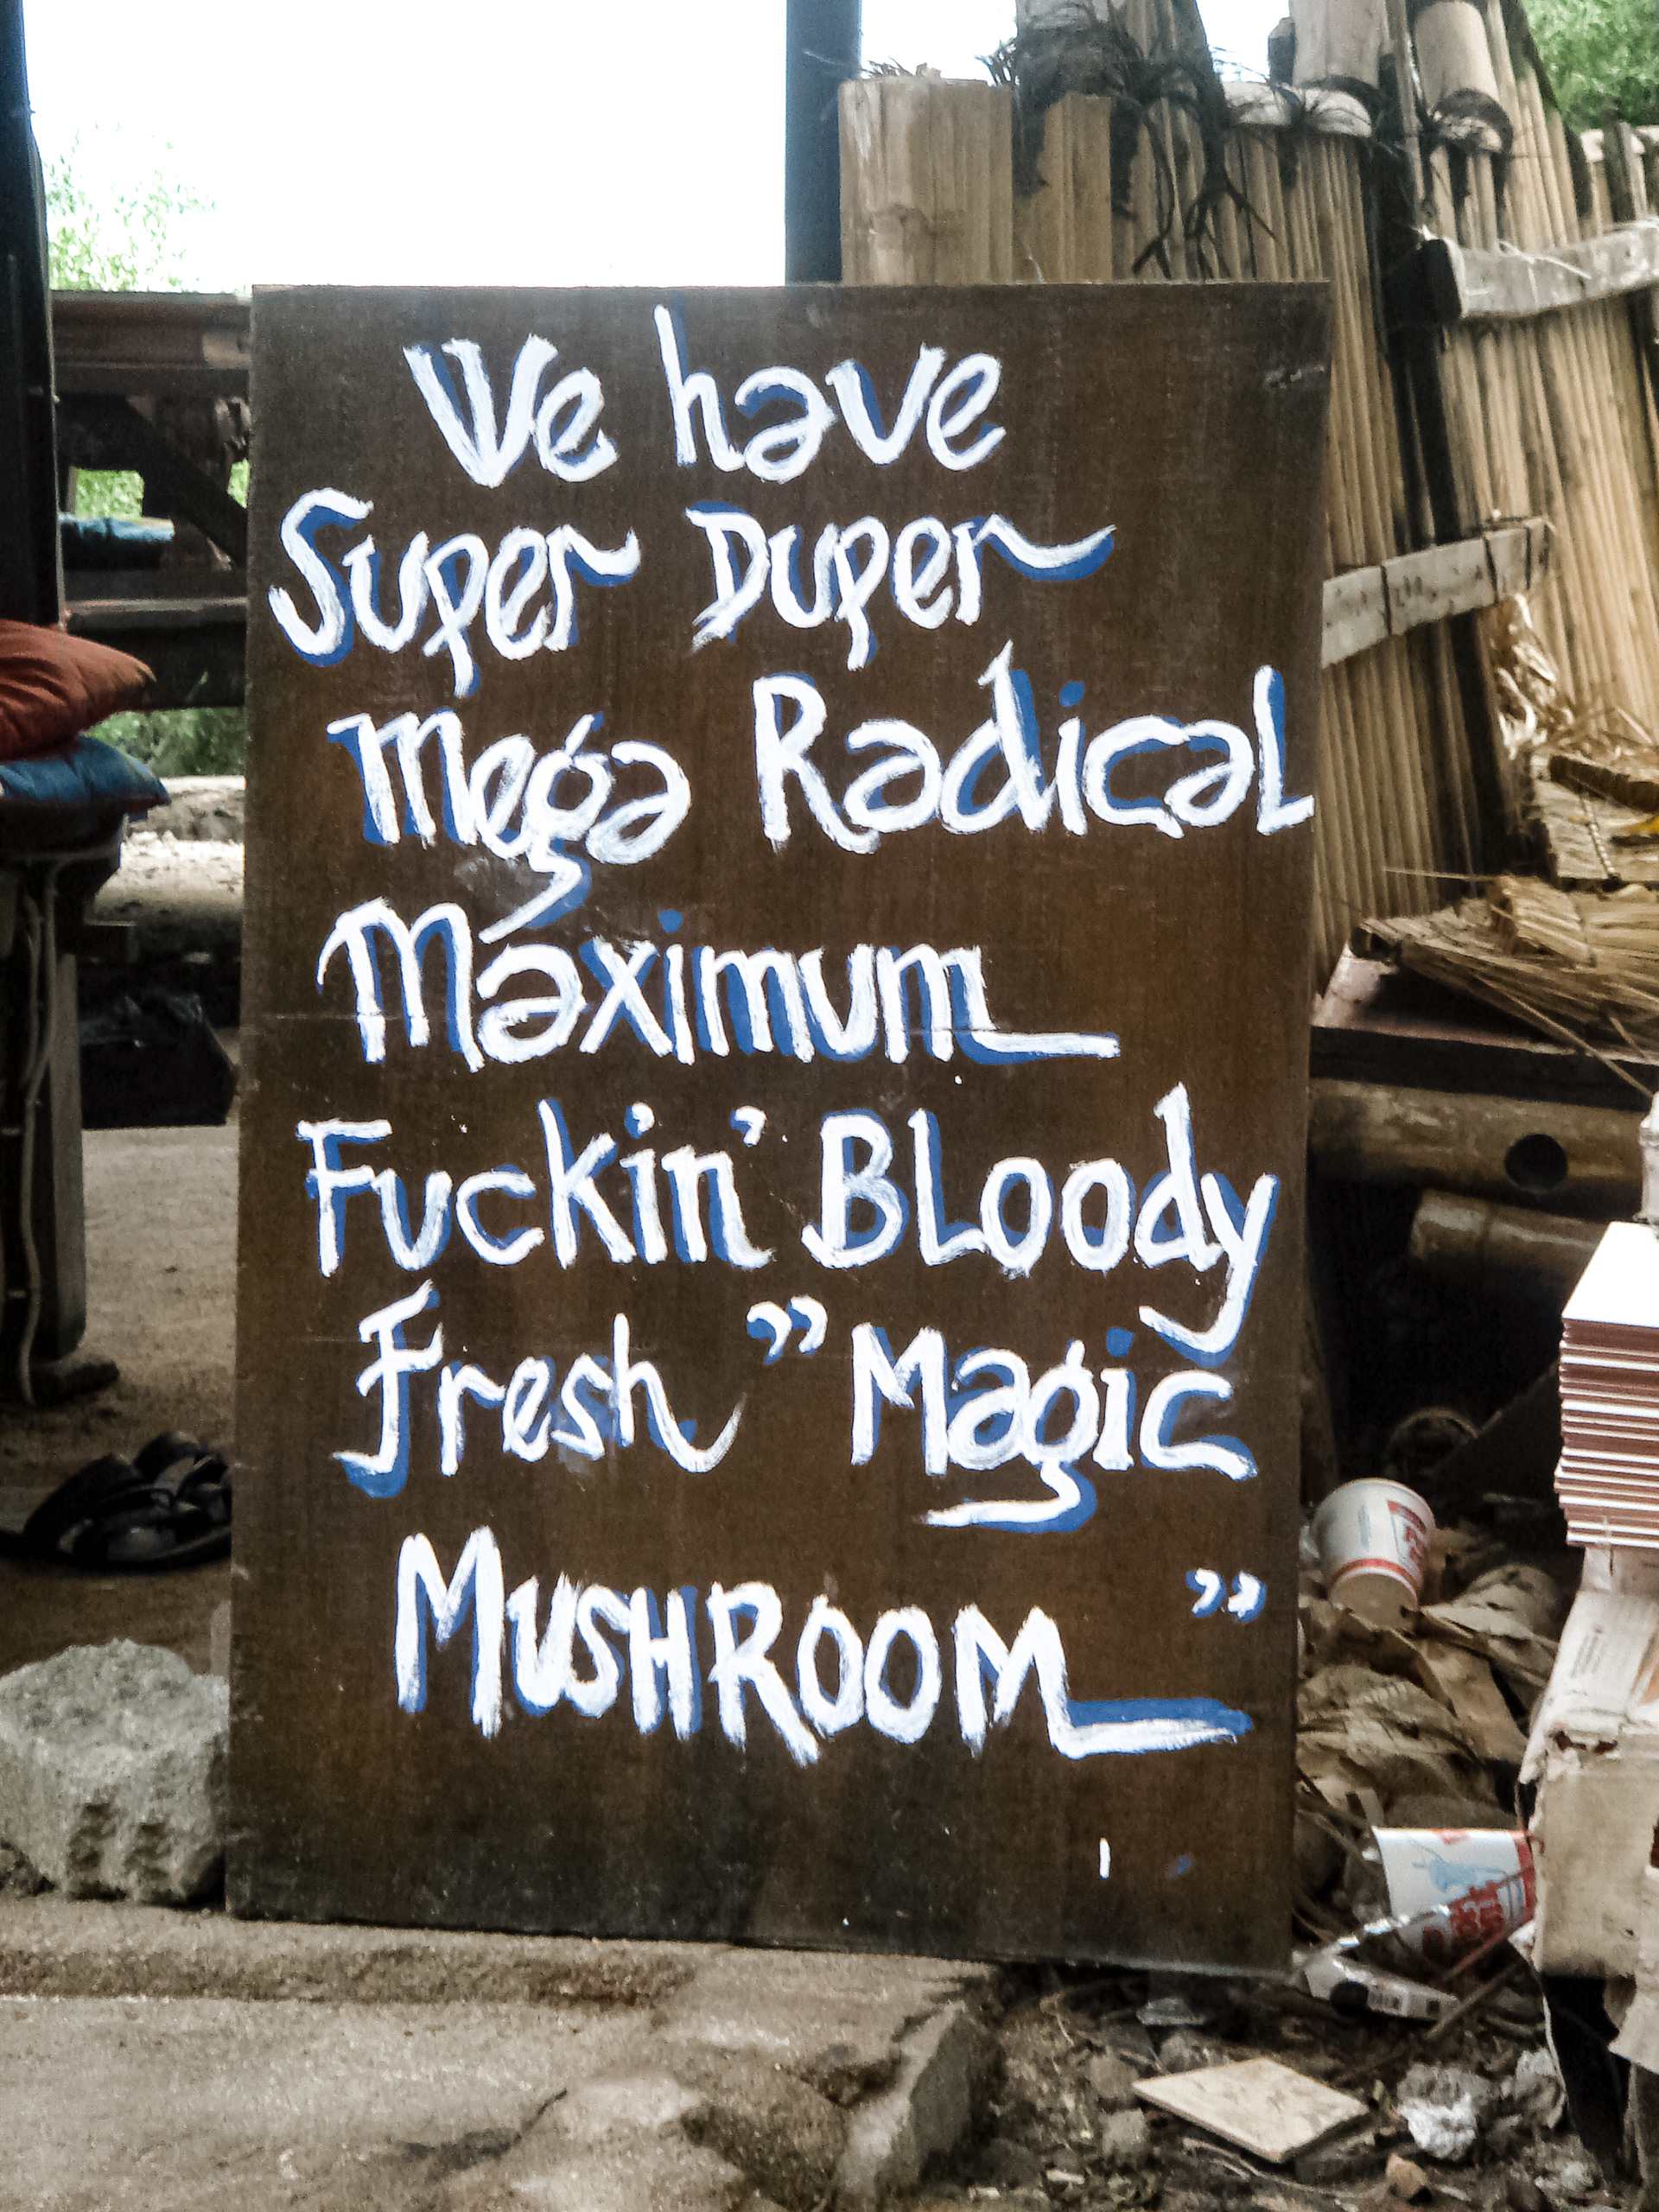 We have
Super Duper
Mega Radical
Maximum
Fuckin' Bloody
Fresh "Magic
MUSHROOM"